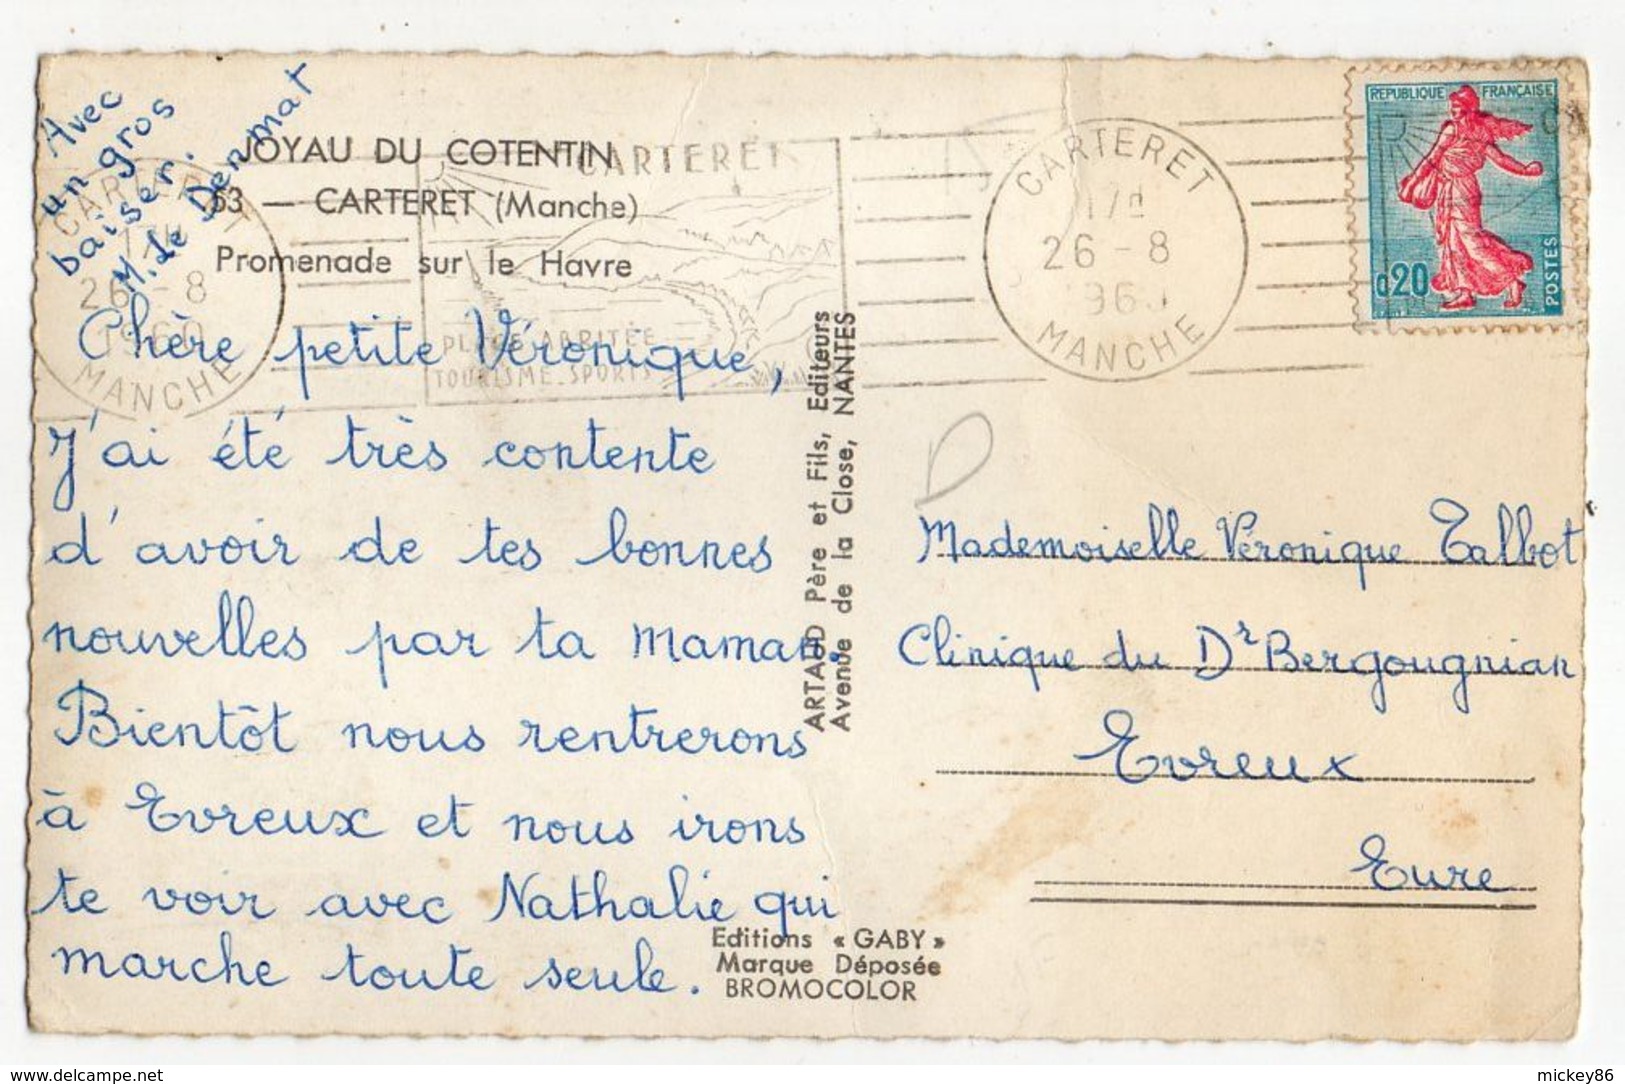 Avec
un gros
baiser.
M. de Denmat
JOYAU DU COTENTIN
53 — CARTERET (Manche)
Promenade sur le Havre
CARTERET
26 - 8
1960
MANCHE
CARTERET
PLAGE ABRITÉE
TOURISME. SPORTS
CARTERET
26 - 8
196
MANCHE
REPUBLIQUE FRANÇAISE
0,20
POSTES
Chère petite Véronique,
J'ai été très contente
d'avoir de tes bonnes
nouvelles par ta maman.
Bientôt nous rentrerons
à Evreux et nous irons
te voir avec Nathalie qui
marche toute seule.
ARTAUD Père et Fils, Editeurs
Avenue de la Close, NANTES
Mademoiselle Véronique Talbot
Clinique du Dr Bergougnian
Evreux
Eure
Editions « GABY »
Marque Déposée
BROMOCOLOR
https://www.delcampe.net
mickey86